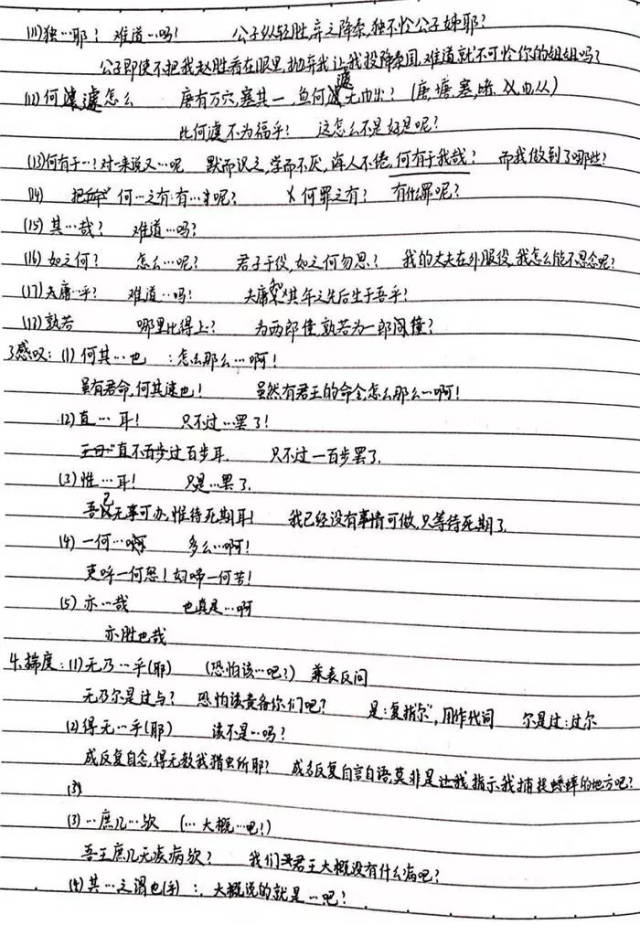 (11)独…耶! 难道…吗! 公子纵轻胜弃之降秦,独不怜公子姊耶?
公子即使不把我赵胜看在眼里,抛弃我让我投降秦国,难道就不可怜你的姐姐吗?
(12)何遽 怎么 唐有万穴,塞其一,鱼何遽无由出?(唐,塘,塞,堵,以由,从)
此何遽不为福乎? 这怎么不是好是呢?
(13)何有于…?对…来说又…呢 默而识之,学而不厌,诲人不倦,何有于我哉? 而我做到了哪些?
(14) 何…之有 有…呢? 何罪之有? 有什罪呢?
(15)其…哉? 难道…吗?
(16)如之何? 怎么…呢? 君子于役,如之何勿思? 我的丈夫在外服役,我怎么能不思念呢?
(17)夫庸…乎? 难道…吗! 夫庸知其年之先后生于吾乎?
(18)孰若 哪里比得上? 为两郎僮,孰若为一郎僮?
3感叹:(1)何其…也 :怎么那么…啊!
虽有君命,何其速也! 虽然有君王的命令,怎么那么…啊!
(2)直…耳! 只不过…罢了!
直不百步过百步耳. 只不过一百步罢了.
(3)惟…耳! 只是…罢了.
吾已无事可办,惟待死期耳! 我已经没有事情可做,只等待死期了.
(4)一何…啊 多么…啊!
吏呼一何怒!妇啼一何苦!
(5)亦…哉 也真是…啊
亦胜也哉
4.揣度:(1)无乃…乎(耶) (恐怕该…吧?) 兼表反问
无乃尔是过与? 恐怕该责备你们吧? 是:复指"尔",用作代词 尔是过:过尔
(2)得无…乎(耶) 该不是…吗?
成反复自念,得无教我猎虫所耶? 成名反复自言自语,莫非是让我指示我捕捉蟋蟀的地方吧?
(3)
(3)…庶几…欤 (…大概…吧!)
吾王庶几无疾病欤? 我们君王大概没有什么病吧?
(4)其…之谓也(乎) :大概说的就是…吧?